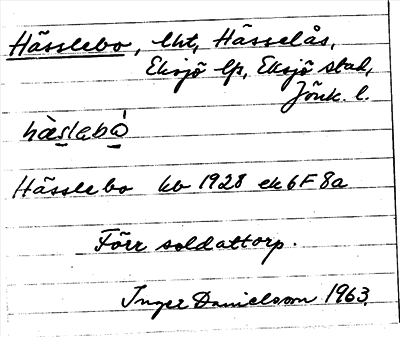 Hässlebo, lht, Hässelås,
Eksjö lfs, Eksjö stad,
Jönk. l.
hàslabò
Hässlebo kb 1928 ek 6F 8a
Förr soldattorp.
Inger Danielsson 1963.